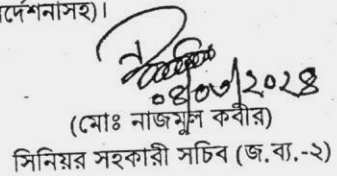 র্দেশনাসহ)।
০৪/০৩/২০২৪
(মোঃ নাজমুল কবীর)
সিনিয়র সহকারী সচিব (জ.ব্য.-২)